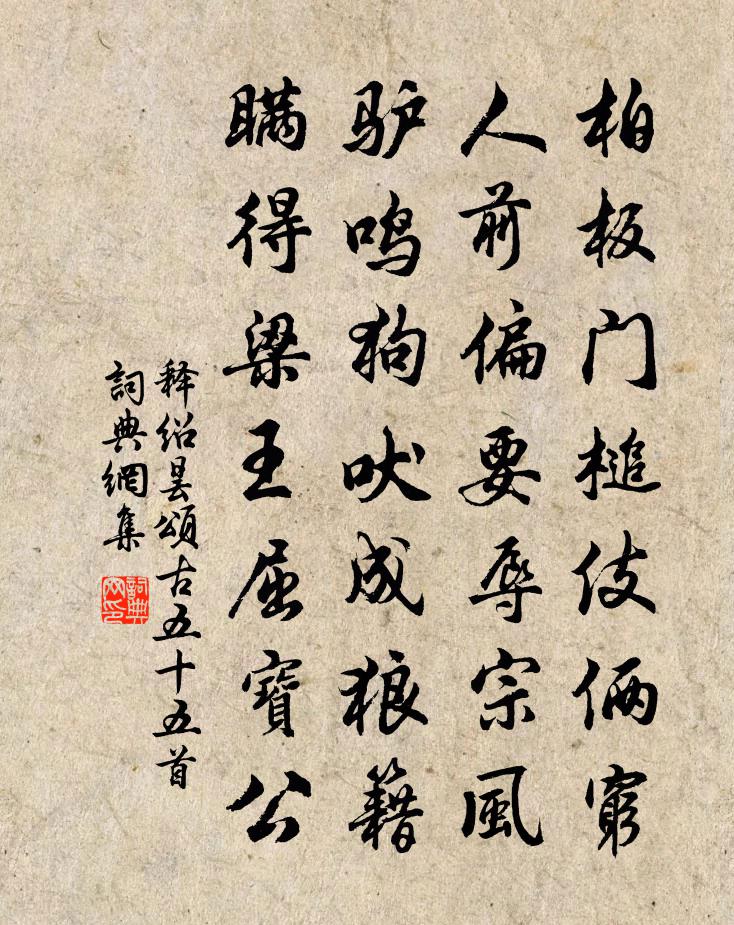 柏板门槌伎俩窮
人前偏要辱宗風
驴鸣狗吠成狼籍
瞒得梁王屈寶公
释绍昙頌古五十五首
詞典網集
詞典網印